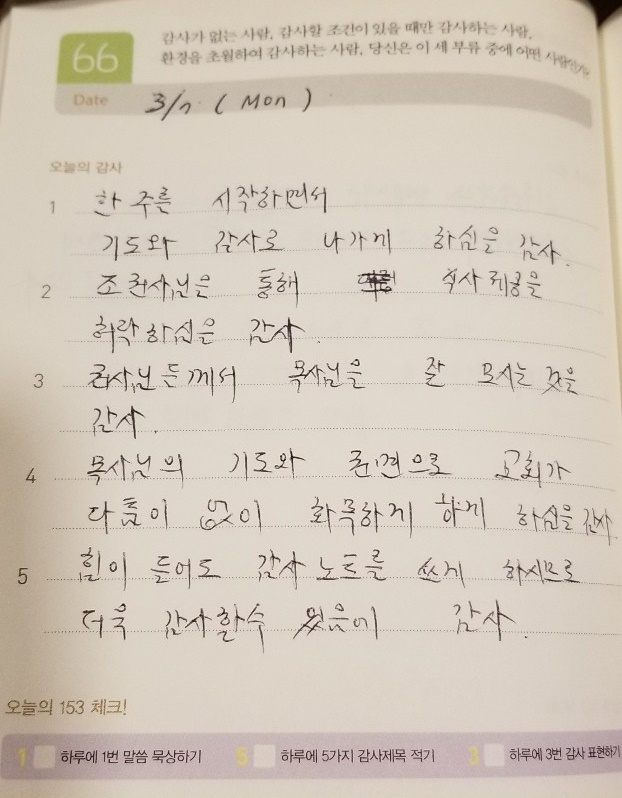 66
감사가 없는 사람, 감사할 조건이 있을 때만 감사하는 사람,
환경을 초월하여 감사하는 사람, 당신은 이 세 부류 중에 어떤 사람인가?
Date 3/7. (Mon)
오늘의 감사
1 한 주를 시작하면서
기도와 감사로 나가게 하심을 감사.
2 조권사님을 통해 식사 제공을
허락하심을 감사.
3 권사님들께서 목사님을 잘 모시는 것을
감사.
4 목사님의 기도와 권면으로 교회가
다툼이 없이 화목하게 하게 하심을 감사.
5 힘이 들어도 감사 노트를 쓰게 하시므로
더욱 감사할수 있음에 감사.
오늘의 153 체크!
1 하루에 1번 말씀 묵상하기 5 하루에 5가지 감사제목 적기 3 하루에 3번 감사 표현하기